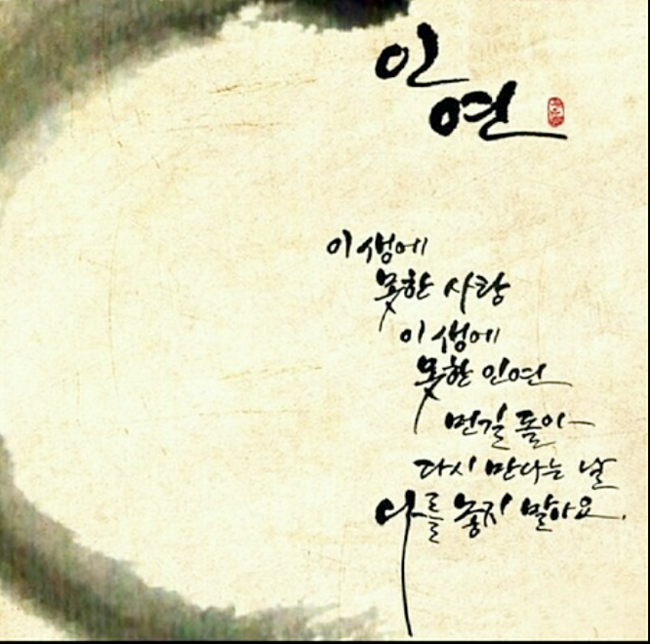 인
연
이 생에
못한 사랑
이 생에
못한 인연
먼길 돌아
다시 만나는 날
나를 놓지 말아요.